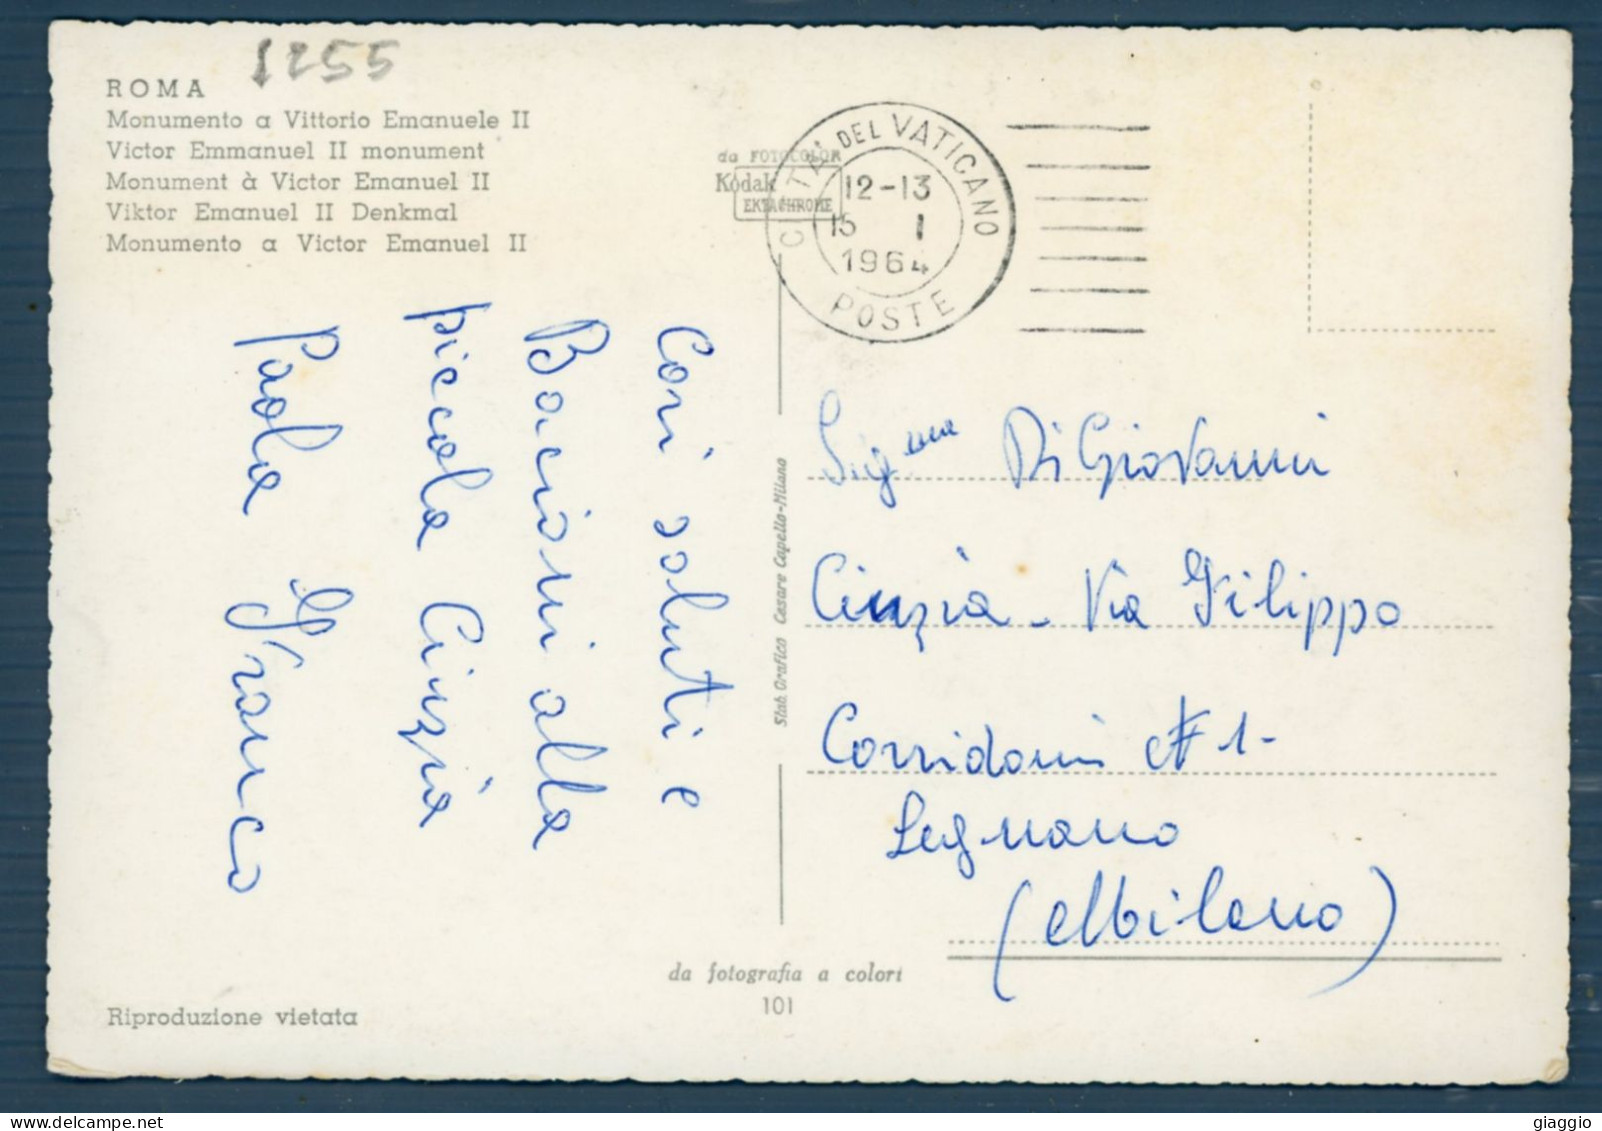 1255
ROMA
Monumento a Vittorio Emanuele II
Victor Emmanuel II monument
Monument à Victor Emanuel II
Viktor Emanuel II Denkmal
Monumento a Victor Emanuel II
da FOTOCOLOR
Kodak
EKTACHROME
CITTA' DEL VATICANO
12-13
15 I
1964
POSTE
Cari saluti e
Bacioni alla
piccola Cinzia
Paola Franco
Stab. Grafico Cesare Capello-Milano
Sig.na Di Giovanni
Cinzia - Via Filippo
Corridoni N 1-
Legnano
(Milano)
da fotografia a colori
101
Riproduzione vietata
giaggio